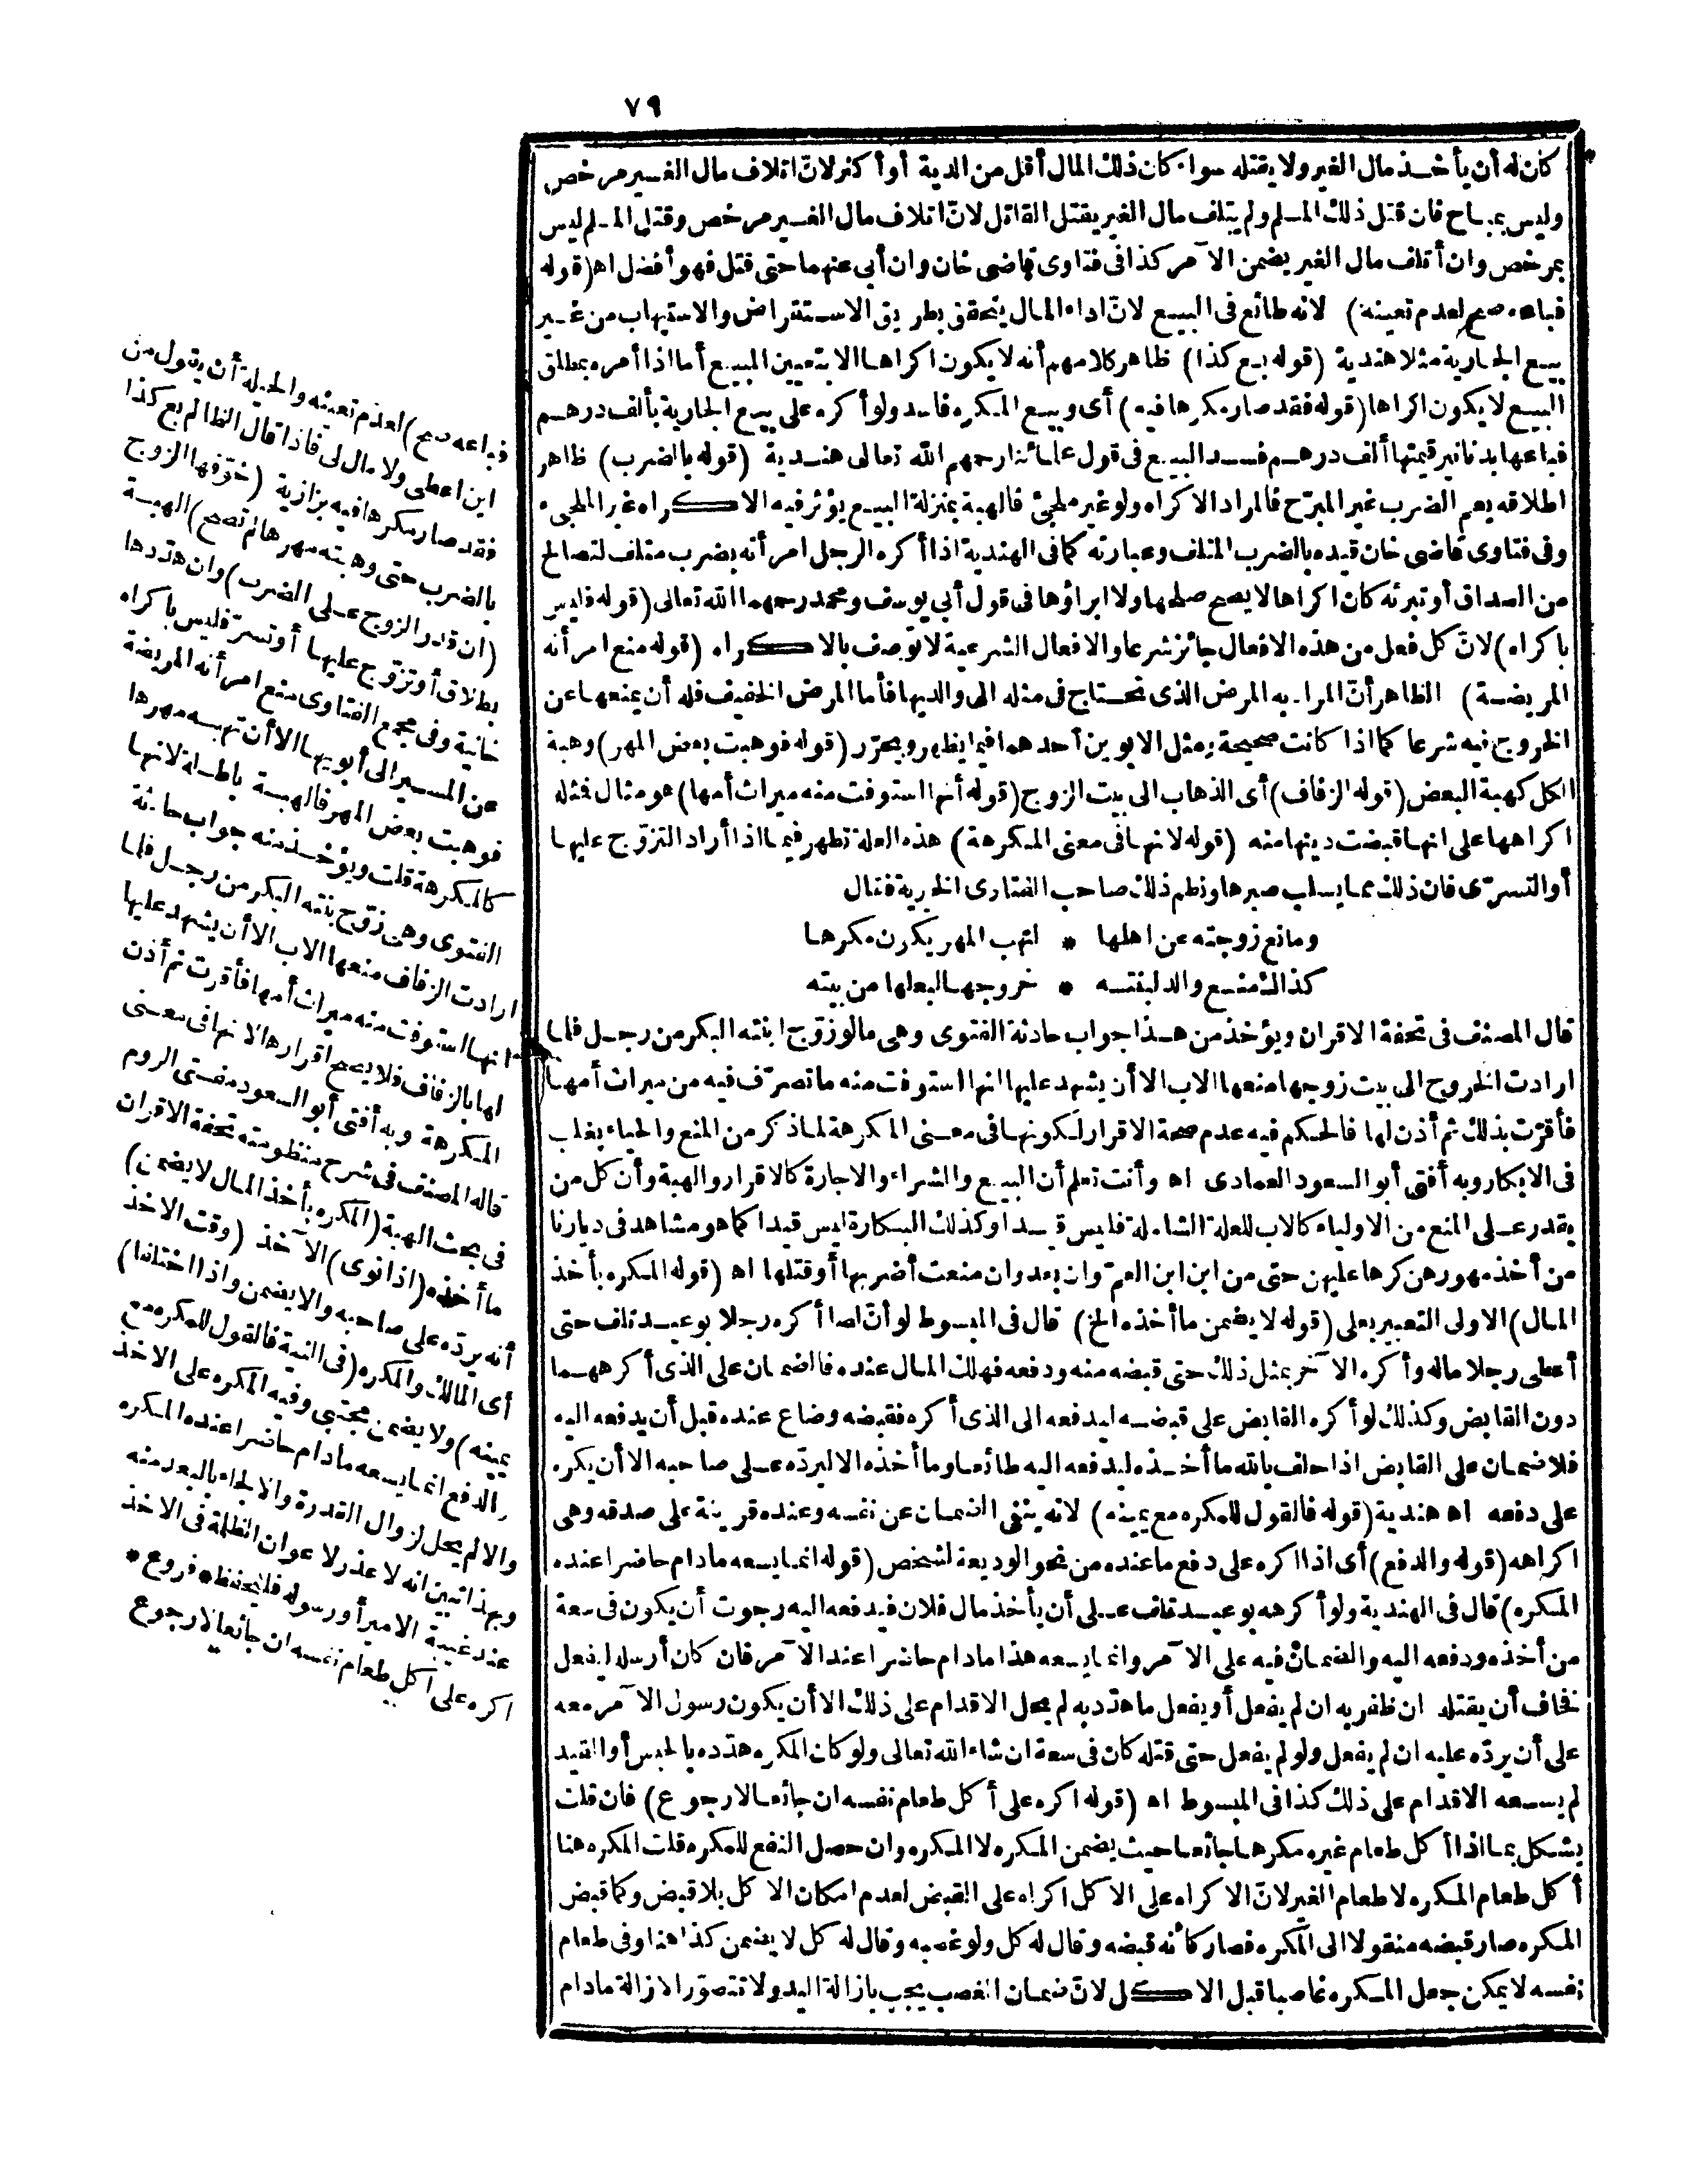 ٧٩
كان له أن يأخذ مال الغير ولا يقتله سواء كان ذلك المال أقل من الدية أو أكثر لان اتلاف مال الغير مرخص
وليس بمباح فان قتل ذلك المسلم ولم يتلف مال الغير يقتل القاتل لان اتلاف مال الغير مرخص وقتل المسلم ليس
بمرخص وان أتلف مال الغير يضمن الآمر كذا فى فتاوى قاضى خان وان أبى عنهما حتى قتل فهو أفضل اه (قوله
فباعه صح لعدم تعينه) لانه طائع فى البيع لان اداء المال يتحقق بطريق الاستقراض والاستيهاب من غير
بيع الجارية مثلا هندية (قوله بع كذا) ظاهر كلامهم أنه لا يكون اكراها الا بتعيين المبيع أما اذا أمره بمطلق
البيع لا يكون اكراها (قوله فقد صار مكرها فيه) أى وبيع المكره فاسد ولو أكره على بيع الجارية بألف درهم
فباعها بدنانير قيمتها ألف درهم فسد البيع فى قول علمائنا رحمهم الله تعالى هندية (قوله بالضرب) ظاهر
اطلاقه يعم الضرب غير المبرّح فالمراد الاكراه ولو غير ملجئ فالهبة بمنزلة البيع يؤثر فيه الاكراه غير الملجىء
وفى فتاوى قاضى خان قيده بالضرب المتلف وعبارته كما فى الهندية اذا أكره الرجل امرأته بضرب متلف لتصالح
من الصداق أو تبرئه كان اكراها لا يصح صلحها ولا ابراؤها فى قول أبى يوسف ومحمد رحمهما الله تعالى (قوله فليس
باكراه) لان كل فعل من هذه الافعال جائز شرعا والافعال الشرعية لا توصف بالاكراه (قوله منع امرأته
المريضة) الظاهر أنّ المراد به المرض الذى تحتاج فى مثله الى والديها فأما المرض الخفيف فله أن يمنعها عن
الخروج فيه شرعا كما اذا كانت صحيحة ومثل الابوين أحدهما فيما يظهر ويحرّر (قوله فوهبت بعض المهر) وهبة
الكل كهبة البعض (قوله الزفاف) أى الذهاب الى بيت الزوج (قوله أنها استوفت منه ميراث أمها) هو مثال فمثله
اكراهها على انها قبضت دينها منه (قوله لانها فى معنى المكرهة) هذه العلة تظهر فيما اذا أراد التزوّج عليها
أو التسرّى فان ذلك مما يسلب صبرها ونظم ذلك صاحب الفتاوى الخيرية فقال
ومانع زوجته عن اهلها * لتهب المهر يكون مكرها
كذاك منع والد لبنته * خروجها لبعلها من بيته
قال المصنف فى تحفة الاقران ويؤخذ من هذا جواب حادثة الفتوى وهى ما لو زوّج ابنته البكر من رجل فلما
ارادت الخروج الى بيت زوجها منعها الاب الا أن يشهد عليها انها استوفت منه ما تصرّف فيه من ميراث أمها
فأقرّت بذلك ثم أذن لها فالحكم فيه عدم صحة الاقرار لكونها فى معنى المكرهة لما ذكر من المنع والحياء يغلب
فى الابكار وبه أفتى أبو السعود العمادى اه وأنت تعلم أن البيع والشراء والاجارة كالاقرار والهبة وأن كل من
يقدر على المنع من الاولياء كالاب للعلة الشاملة فليس قيدا وكذلك البكارة ليس قيدا كما هو مشاهد فى ديارنا
من أخذ مهورهن كرها عليهن حتى من ابن ابن العمّ وان بعد وان منعت أضر بها أو قتلها اه (قوله المكره بأخذ
المال) الاولى التعبير بعلى (قوله لا يضمن ما أخذه الخ) قال فى المبسوط لو أنّ لصا أكره رجلا بوعيد تلف حتى
أعطى رجلا ماله وأكره الآخر بمثل ذلك حتى قبضه منه ودفعه فهلك المال عنده فالضمان على الذى أكرههما
دون القابض وكذلك لو أكره القابض على قبضه ليدفعه الى الذى أكره فقبضه وضاع عنده قبل أن يدفعه اليه
فلا ضمان على القابض اذا حلف بالله ما أخذه ليدفعه اليه طائعا وما أخذه الا ليردّه على صاحبه الا أن يكره
على دفعه اه هندية (قوله فالقول للمكره مع يمينه) لانه ينفى الضمان عن نفسه وعنده قرينة على صدقه وهى
اكراهه (قوله والدفع) أى اذا اكره على دفع ما عنده من نحو الوديعة لشخص (قوله انما يسعه مادام حاضرا عنده
المكره) قال فى الهندية ولو أكرهه بوعيد تلف على أن يأخذ مال فلان فيدفعه اليه رجوت أن يكون فى سعة
من أخذه ودفعه اليه والضمان فيه على الآمر وانما يسعه هذا مادام حاضرا عند الآمر فان كان أرسله ليفعل
فخاف أن يقتله ان ظفر به ان لم يفعل أو يفعل ما هدّد به لم يحل الاقدام على ذلك الا أن يكون رسول الآمر معه
على أن يردّه عليه ان لم يفعل ولو لم يفعل حتى قتله كان فى سعة ان شاء الله تعالى ولو كان المكره هدّده بالحبس أو القيد
لم يسعه الاقدام على ذلك كذا فى المبسوط اه (قوله اكره على أكل طعام نفسه ان جائعا لا رجوع) فان قلت
يشكل بما اذا أكل طعام غيره مكرها جائعا حيث يضمن المكره لا المكره وان حصل النفع للمكره قلت المكره هنا
أكل طعام المكره لا طعام الغير لانّ الاكراه على الاكل اكراه على القبض لعدم امكان الاكل بلا قبض وكما قبض
المكره صار قبضه منقولا الى المكره فصار كأنه قبضه وقال له كل ولو غصبه وقال له كل لا يضمن كذا هذا وفى طعام
نفسه لا يمكن جعل المكره غاصبا قبل الاكل لانّ ضمان الغصب يجب بازالة اليد ولا تتصوّر الازالة مادام
فباعه صح) لعدم تعينه والحيلة أن يقول من
اين اعطى ولا مال لى فاذا قال الظالم بع كذا
فقد صار مكرها فيه بزازية (خوّفها الزوج
بالضرب حتى وهبته مهرها لم تصح) الهبة
(ان قدر الزوج على الضرب) وان هدّدها
بطلاق أو تزوّج عليها أو تسرّ فليس باكراه
خانية وفى مجمع الفتاوى منع امرأته المريضة
عن المسير الى أبويها الا أن تهبه مهرها
فوهبت بعض المهر فالهبة باطلة لانها
كالمكرهة قلت ويؤخذ منه جواب حادثة
الفتوى وهى زوّج بنته البكر من رجل فلما
ارادت الزفاف منعها الاب الا أن يشهد عليها
انها استوفت منه ميراث أمها فأقرت ثم أذن
لها بالزفاف فلا يصح اقرارها لانها فى معنى
المكرهة وبه أفتى أبو السعود مفتى الروم
قاله المصنف فى شرح منظومته تحفة الاقران
فى بحث الهبة (المكره بأخذ المال لا يضمن)
ما أخذه (اذا نوى) الآخذ (وقت الاخذ
أنه يردّه على صاحبه والا يضمن واذا اختلفا)
أى المالك والمكره (فى النية فالقول للمكره مع
يمينه) ولا يضمن مجتبى وفيه المكره على الاخذ
والدفع انما يسعه مادام حاضرا عنده المكره
والا لم يحل لزوال القدرة والالجاء بالبعد منه
وبهذا تبين انه لا عذر لاعوان الظلمة فى الاخذ
عند غيبة الامير أو رسوله فليحفظ * فروع *
اكره على أكل طعام نفسه ان جائعا لا رجوع